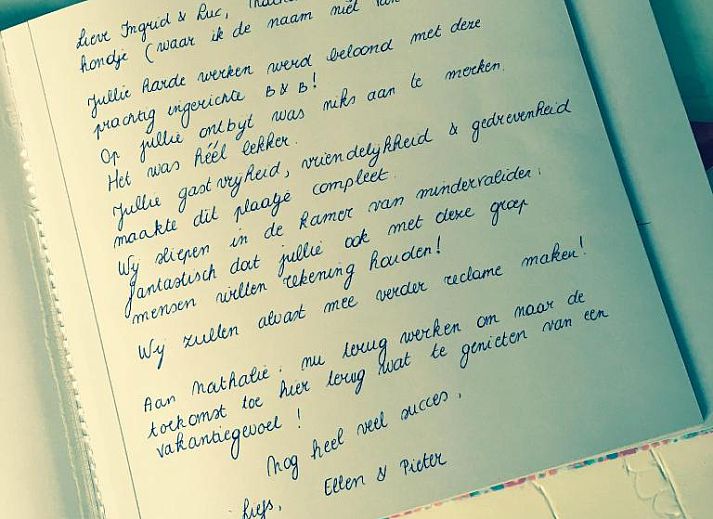 Lieve Ingrid & Luc,
hondje (waar ik de naam niet
Jullie harde werken werd beloond met deze
prachtig ingerichte B & B!
Op jullie ontbyt was niks aan te merken.
Het was héél lekker.
Jullie gastvryheid, vriendelykheid & gedrevenheid
maakte dit plaatje compleet.
Wy sliepen in de kamer van mindervaliden:
fantastisch dat jullie ook met deze groep
mensen willen rekening houden!
Wy zullen alvast mee verder reclame maken!
Aan Nathalie: nu terug werken om naar de
toekomst toe hier terug wat te genieten van een
vakantiegevoel!
Nog heel veel succes,
Liefs,
Ellen & Pieter